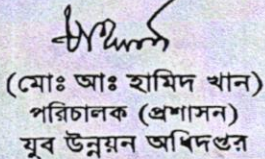 (মোঃ আঃ হামিদ খান)
পরিচালক (প্রশাসন)
যুব উন্নয়ন অধিদপ্তর